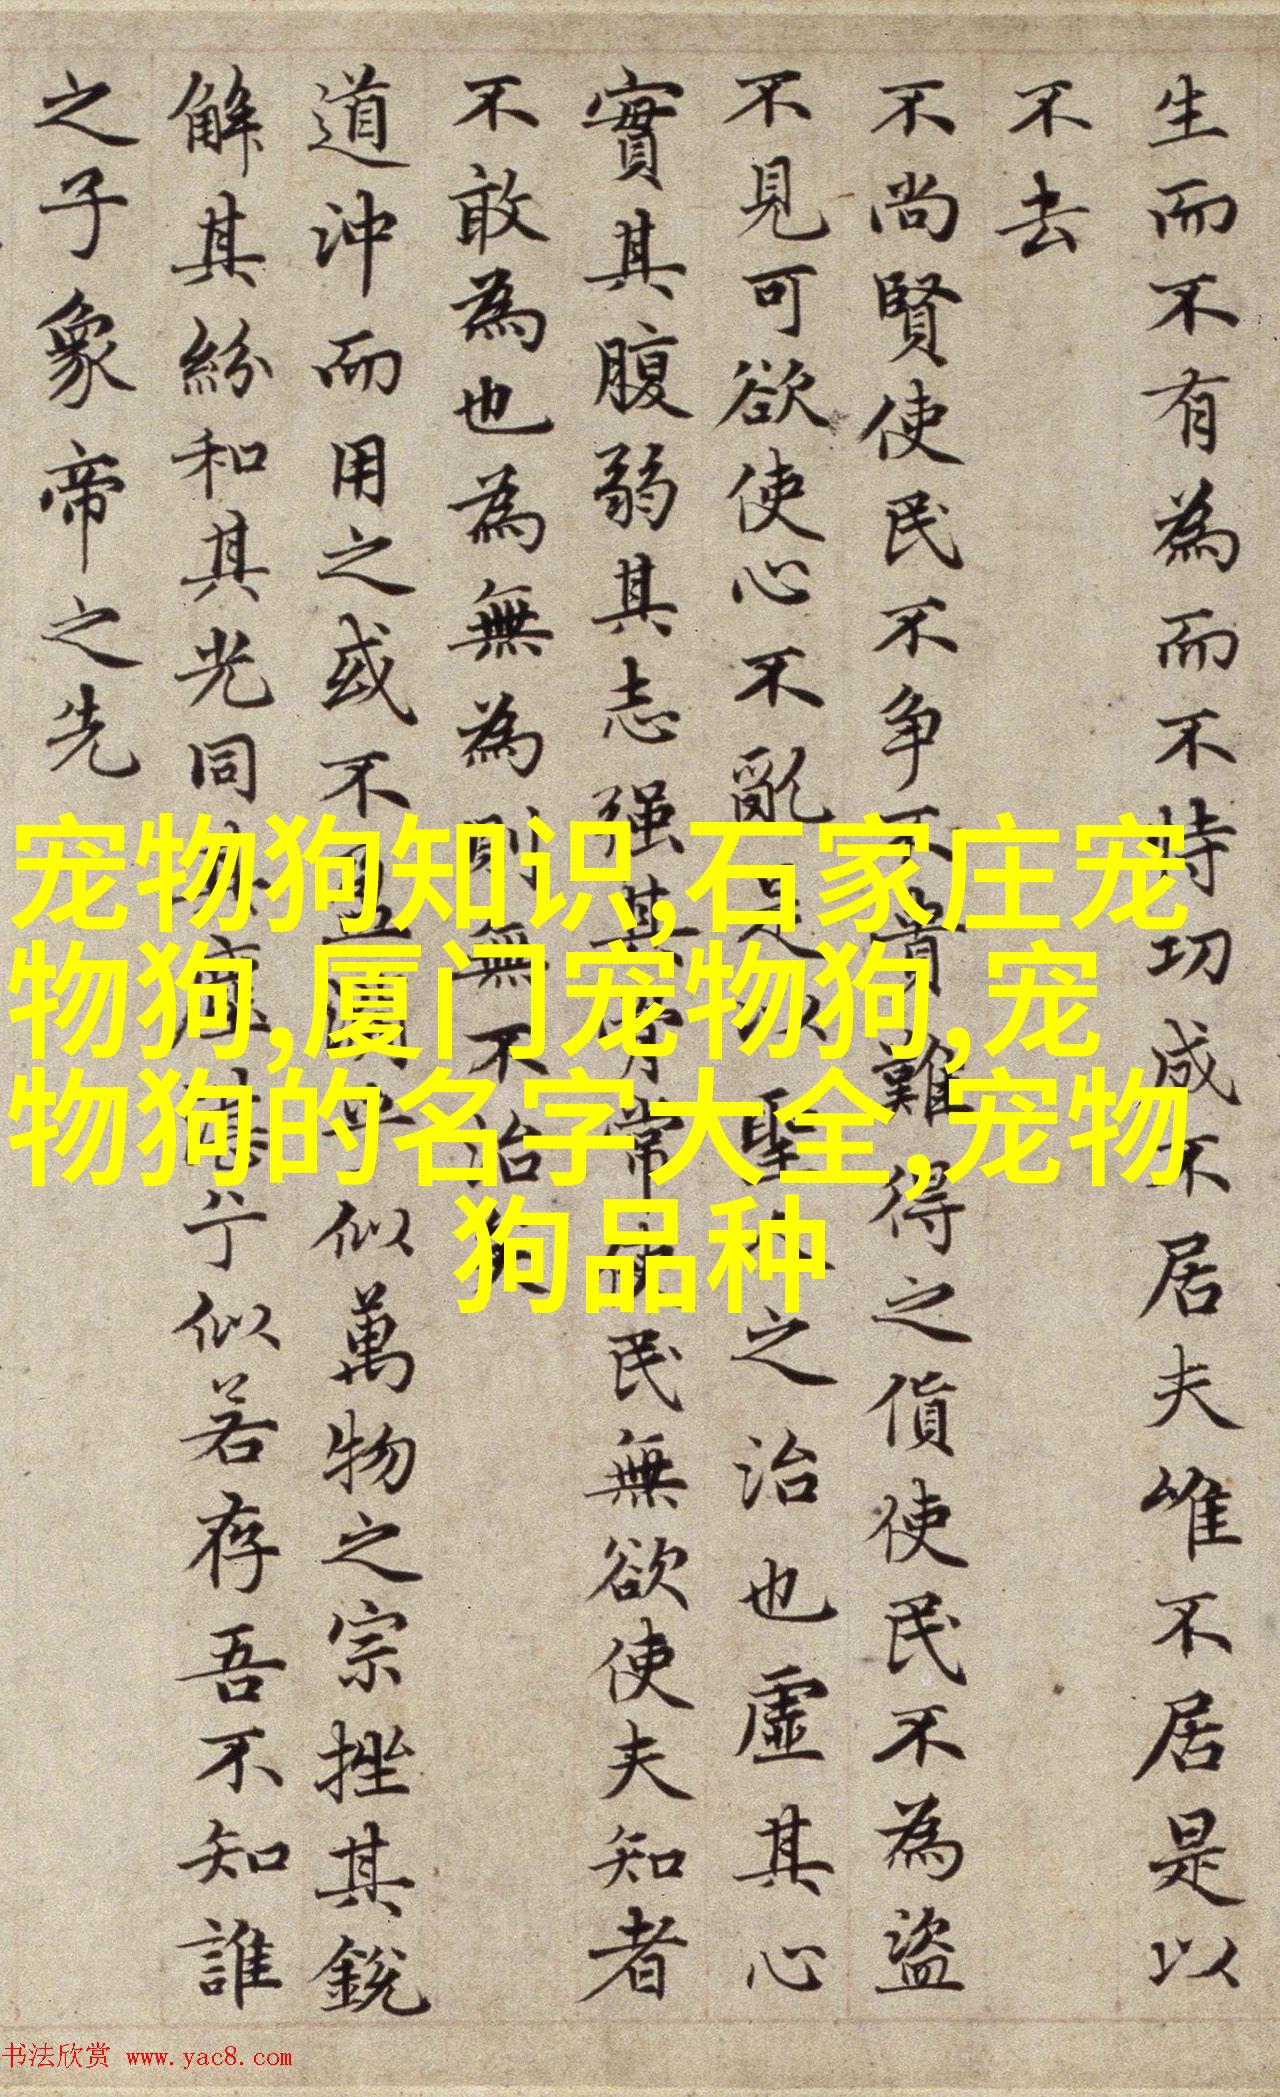 生而不有為而不恃功成不居夫唯不居是以
不去
不尚賢使民不争不貴難得之貨使民不為盗
不見可欲使心不亂是以聖人之治也虛其心
實其腹弱其志强其骨常使民無欲使夫知者
不敢為也為無為則無不治矣
道沖而用之或不盈乎似萬物之宗挫其銳
解其紛和其光同其塵湛兮似若存吾不知誰
之子象帝之先
宠物狗知识,石家庄宠
物狗,厦门宠物狗,宠
物狗的名字大全,宠物
狗品种
书法欣赏 www.yac8.com